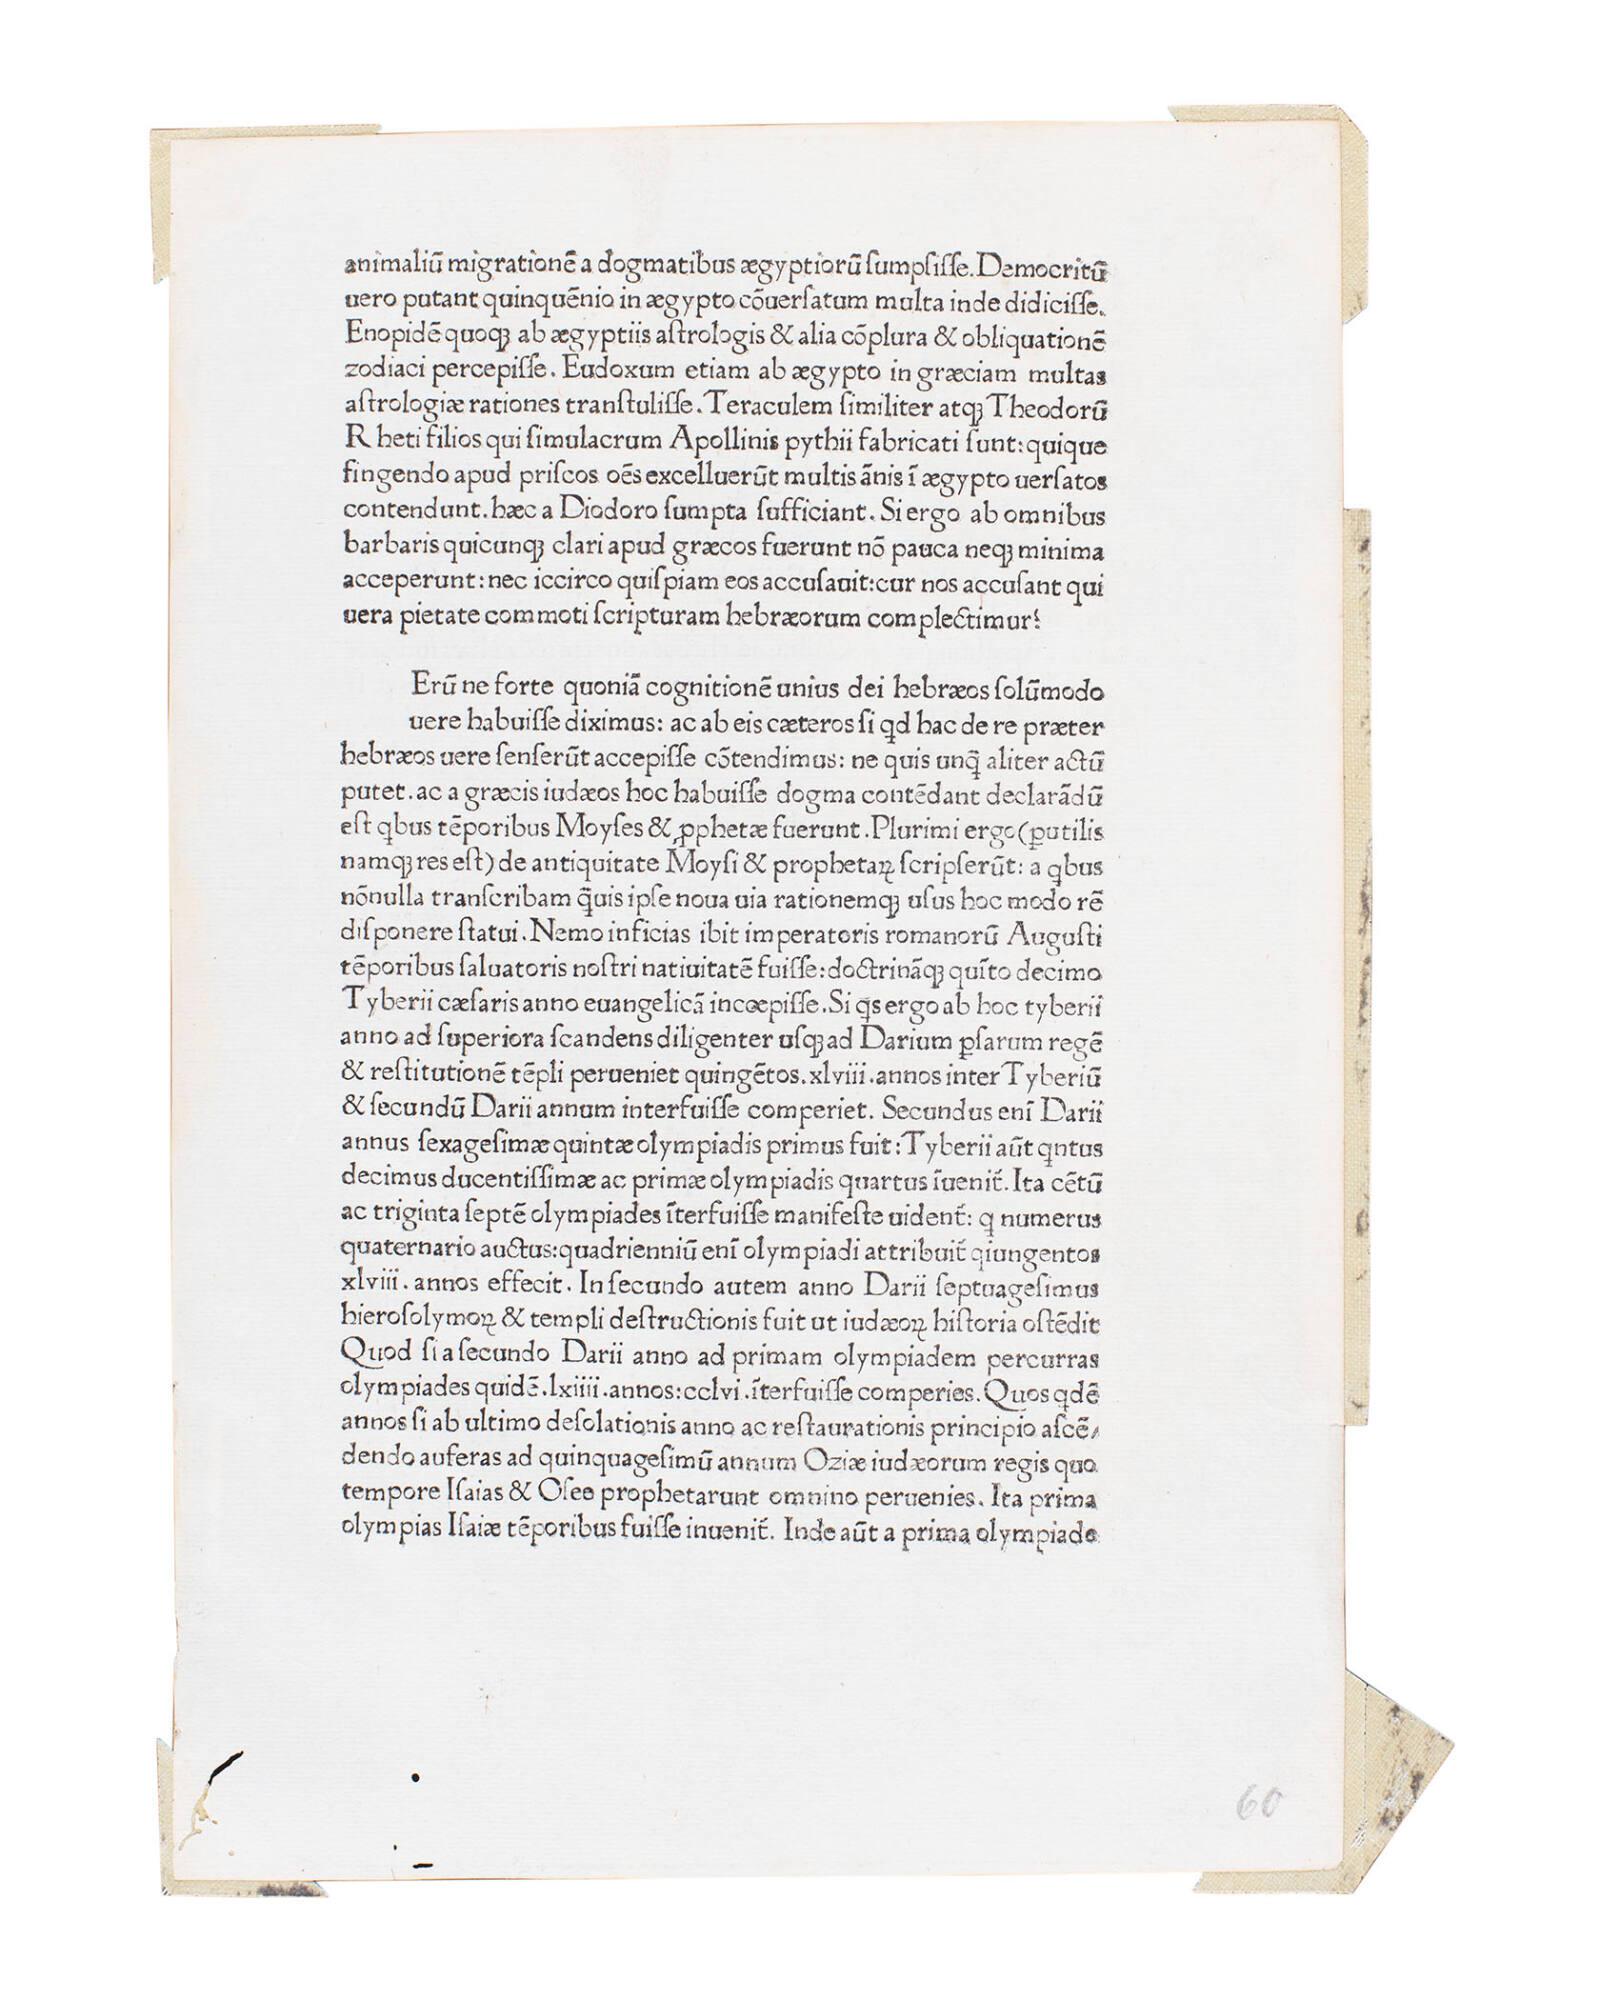 animaliū migrationē a dogmatibus ægyptiorū ſumpſiſſe. Democritū
uero putant quinquēnio in ægypto cōuerſatum multa inde didiciſſe.
Enopidē quoqꝫ ab ægyptiis aſtrologis & alia cōplura & obliquationē
zodiaci percepiſſe. Eudoxum etiam ab ægypto in græciam multas
aſtrologiæ rationes tranſtuliſſe. Teraculem ſimiliter atqꝫ Theodorū
Rheti filios qui ſimulacrum Apollinis pythii fabricati ſunt: quique
fingendo apud priſcos oēs excelluerūt multis ānis ī ægypto uerſatos
contendunt. hæc a Diodoro ſumpta ſufficiant. Si ergo ab omnibus
barbaris quicunqꝫ clari apud græcos fuerunt nō pauca neqꝫ minima
acceperunt: nec iccirco quiſpiam eos accuſauit: cur nos accuſant qui
uera pietate commoti ſcripturam hebræorum complectimur?
Erū ne forte quoniā cognitionē unius dei hebræos ſolūmodo
uere habuiſſe diximus: ac ab eis cæteros ſi qd hac de re præter
hebræos uere ſenſerūt accepiſſe cōtendimus: ne quis unq̄ aliter actū
putet. ac a græcis iudæos hoc habuiſſe dogma contēdant declarādū
eſt qbus tēporibus Moyſes & ꝓphetæ fuerunt. Plurimi ergo (ꝑutilis
namqꝫ res eſt) de antiquitate Moyſi & prophetaꝝ ſcripſerūt: a qbus
nōnulla tranſcribam q̄uis ipſe noua uia rationemqꝫ uſus hoc modo rē
diſponere ſtatui. Nemo inficias ibit imperatoris romanorū Auguſti
tēporibus ſaluatoris noſtri natiuitatē fuiſſe: doctrināqꝫ quīto decimo
Tyberii cæſaris anno euangelicā incœpiſſe. Si qs ergo ab hoc tyberii
anno ad ſuperiora ſcandens diligenter uſqꝫ ad Darium ꝑſarum regē
& reſtitutionē tēpli perueniet quingētos. xlviii. annos inter Tyberiū
& ſecundū Darii annum interfuiſſe comperiet. Secundus enī Darii
annus ſexageſimæ quintæ olympiadis primus fuit: Tyberii aūt qntus
decimus ducentiſſimæ ac primæ olympiadis quartus īuenit̄. Ita cētū
ac triginta ſeptē olympiades īterfuiſſe manifeſte uident̄: q numerus
quaternario auctus: quadrienniū enī olympiadi attribuit̄ qiungentos
xlviii. annos effecit. In ſecundo autem anno Darii ſeptuageſimus
hieroſolymoꝝ & templi deſtructionis fuit ut iudæoꝝ hiſtoria oſtēdit
Quod ſi a ſecundo Darii anno ad primam olympiadem percurras
olympiades quidē. lxiiii. annos: cclvi. īterfuiſſe comperies. Quos qdē
annos ſi ab ultimo deſolationis anno ac reſtaurationis principio aſcē/
dendo auferas ad quinquageſimū annum Oziæ iudæorum regis quo
tempore Iſaias & Oſee prophetarunt omnino peruenies. Ita prima
olympias Iſaiæ tēporibus fuiſſe inuenit̄. Inde aūt a prima olympiade
60